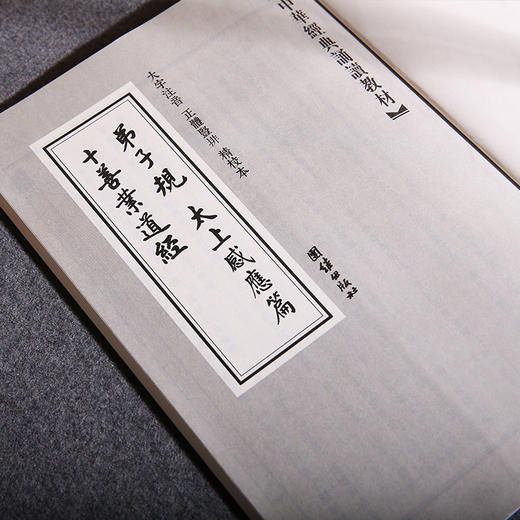 中華經典誦讀教材
大字注音 正體豎排 精校本
弟子規 太上感應篇
十善業道經
團結出版社